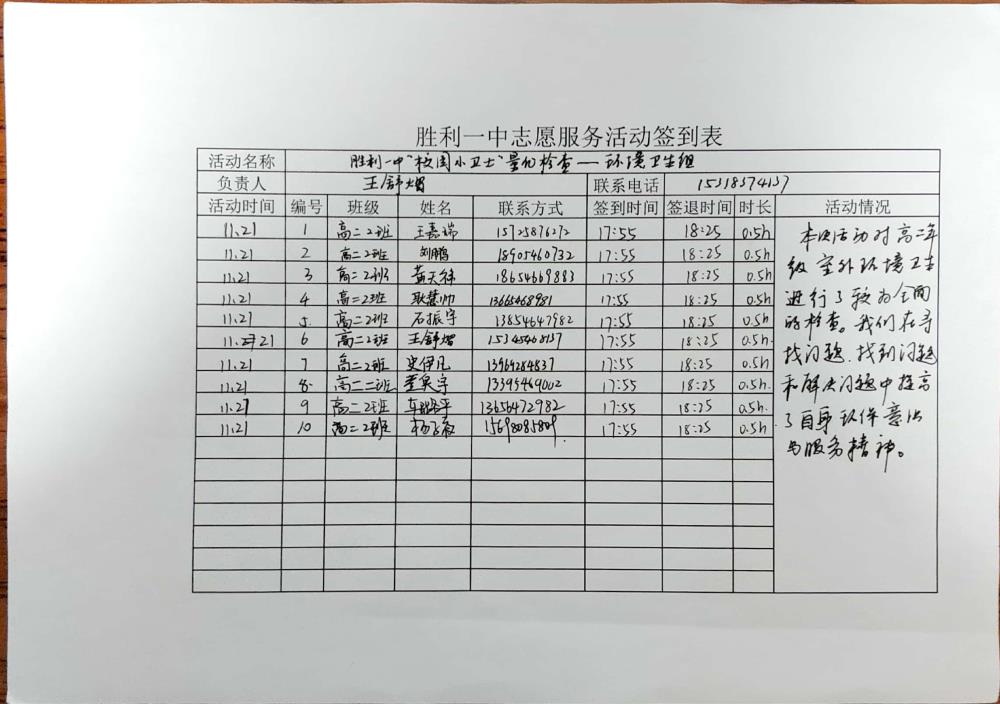 胜利一中志愿服务活动签到表
活动名称 胜利一中“校园小卫士”量化检查——环境卫生组
负责人 王舒熠 联系电话 15318374137
活动时间 编号 班级 姓名 联系方式 签到时间 签退时间 时长 活动情况
11.21 1 高二2班 王嘉瑞 15725876272 17:55 18:25 0.5h
11.21 2 高二2班 刘鹏 18905460732 17:55 18:25 0.5h
11.21 3 高二2班 黄天祎 18654669883 17:55 18:25 0.5h
11.21 4 高二2班 耿慧帅 13665468981 17:55 18:25 0.5h
11.21 5 高二2班 石振宇 13854647982 17:55 18:25 0.5h
11.21 6 高二2班 王舒熠 15345468137 17:55 18:25 0.5h
11.21 7 高二2班 史伊凡 13969284837 17:55 18:25 0.5h
11.21 8 高二二班 董奕宇 13395469002 17:55 18:25 0.5h
11.21 9 高二2班 13656472982 17:55 18:25 0.5h
11.21 10 高二2班 17:55 18:25 0.5h
本次活动对高二年
级室外环境卫生
进行了较为全面
的检查。我们在寻
找问题、找到问题
和解决问题中提高
了自身
与服务精神。